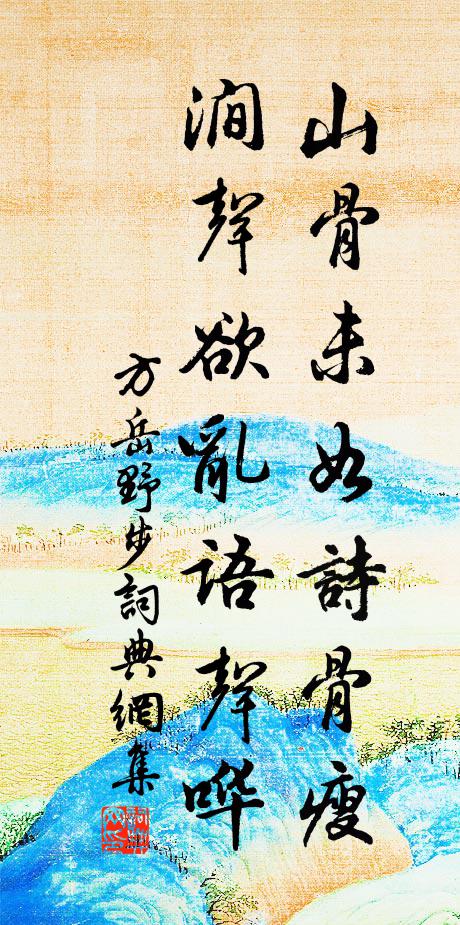 山骨未如詩骨瘦
澗聲欲亂語聲哗
方岳野步詞典網集